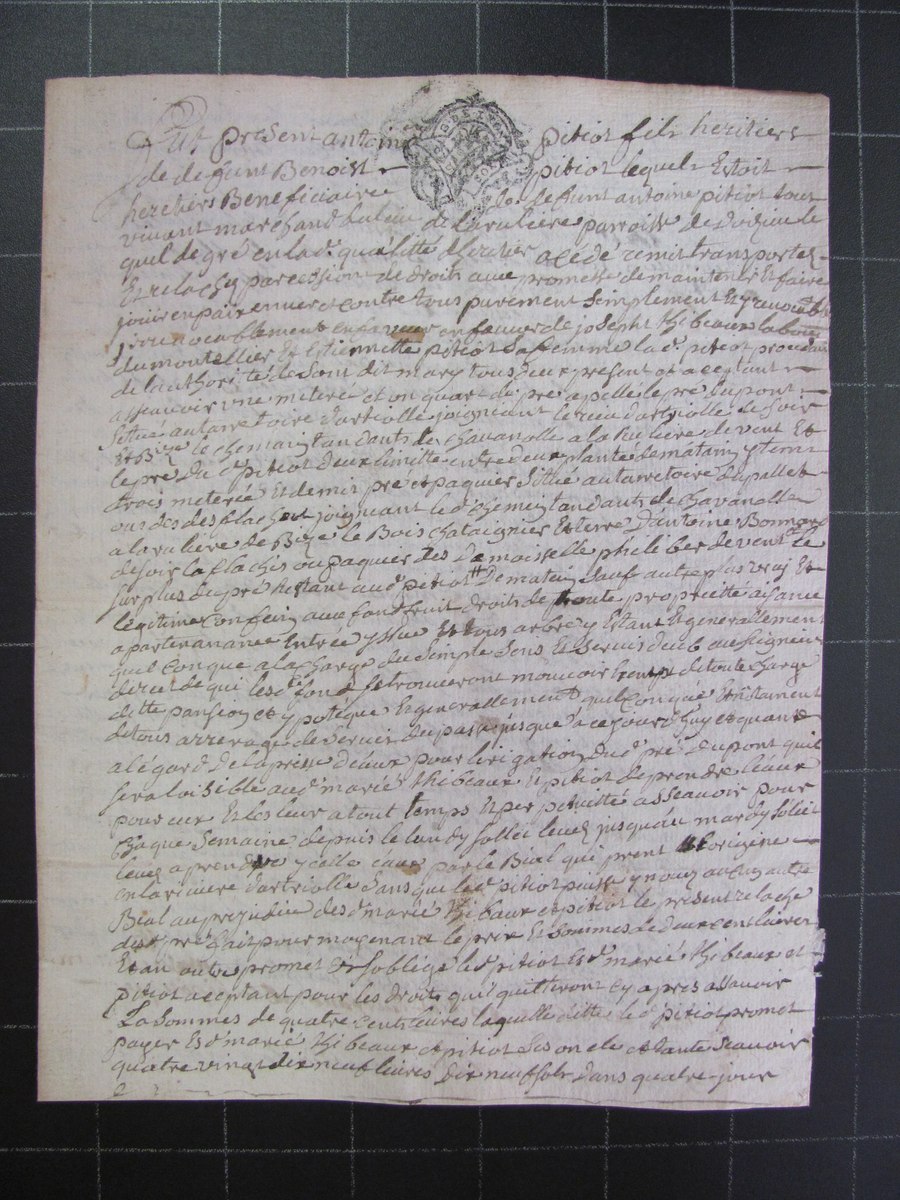 fut present antoine pitiot fils heritiers
de defunt Benoist pitiot lequel Estoit
heretiers Beneficiaire de defunt antoine pitiot tout
vivant marchand du lieu de laruliere parroisse de
quil de gré en lad. qualitté d'heritier a cedé remis transporter
Et relaches par cession de droits avec promesse de maintenir Et faire
jouir en paix envers et contre tous purement simplement Et
irrevocablement en faveur en faveur de joseph thibeaux
du montellier Et Estiennette pitiot sa femme la d. pitiot
de l'authorité de sont dit mary tous deux present et acceptant
asseavoir une meteré et un quart de pré apellé le pré du pont
situé au terretoire d'artiolle joignant le rieu d'artiolle de soir
Et Bize le chemain tandants de Chavanolle a la ruliere de vent Et
le pré du d. pitiot deux limitte entre deux plantée de matain
trois meterée Et demis pré et paquier situé au terretoire
ou des des flaches joignant le d. chemin tandants de Chavanolle
a la ruliere de Bize le Bois chataignier Et terre d'antoine Bonnard
de soir la flaches ou paquier des Demoiselle philiber de vent le
surplus du pré restant au d. pitiot De matain sauf autre plus vray Et
legitime confein aux fond fruit droits de toute proprietté aisance
apartenanance Entrée yssue Et tous arbre y Estant Et generallement
quel conque a la charge du simple sens Et servis deub au seigneur
direct de qui les d. fond se trouveront mouvoir de toute charge
ditte pansion et ypotéque Et generallement quel conque
de tous arrerage de servis du passé jusque a ce jourd'huy et quand
a l'égard de la prise d'eaux pour l'irigation du d. pré du pont quil
sera loisible aud. marié thibeaux Et pitiot de prendre l'eaux
pour eux Et les leur a tout temps Et per petuitté asseavoir pour
Chaque semaine depuis le lundy solleil levé jusquau mardy soleil
levé a prendre ycelle eaux par le Bial qui prent origine
en la riviere d'artiolle sans que le d. pitiot puisse y aucun autre
Bial au prejudice des d. marié thibaux et pitiot le present relache
dit pré fait pour moyenant le prix Et sommes de deux cent livres
Et en outre promet Et s'oblige le d. pitiot Es d. marié thibeaux et
pitiot acceptant pour les droits quil quitteront cy apres assavoir
La sommes de quatre cent livres laquelle ditte le d. pitiot promet
payer Es d. marié thibeaux et pitiot ses oncle et tante scavoir
quatre vingt dix neuf livres dix neuf sols dans quatre jour